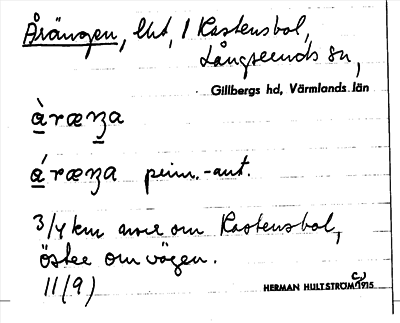 Årängen, lht, / Rastensbol,
Långseruds sn,
Gillbergs hd, Värmlands län
àræŋa
áræŋa prim.-aut.
3/4 km norr om Rastensbol,
öster om vägen.
11(9)
HERMAN HULTSTRÖM 1915